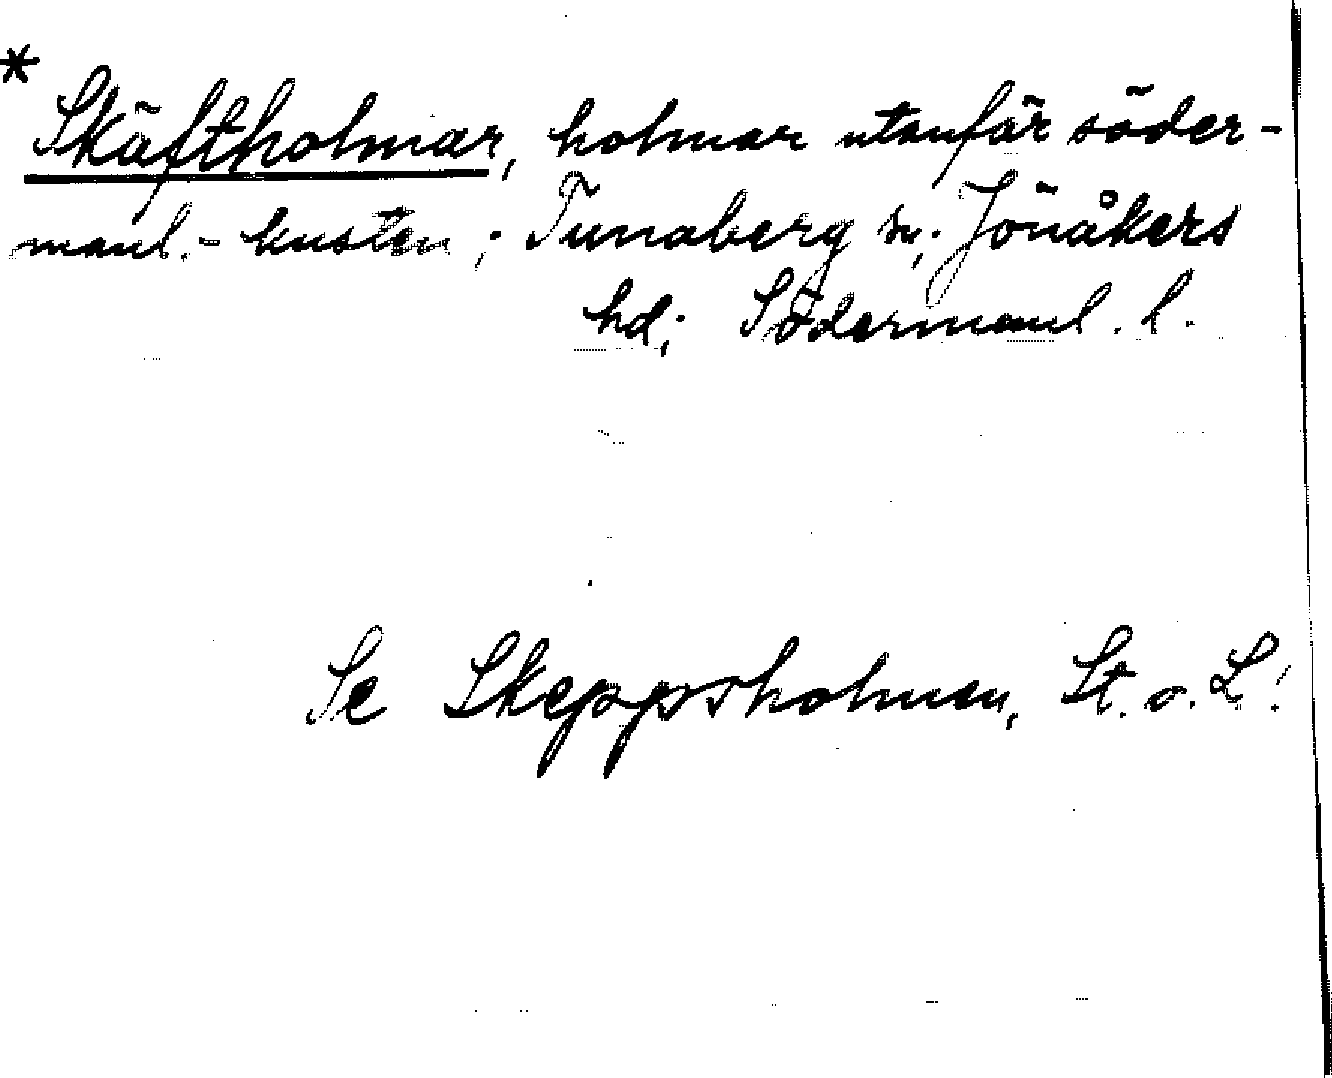 * Skäftholmar, holmar utanför söder-
manl.-kusten; Tunaberg sn; Jönåkers
hd; Södermanl. l.
Se Skeppsholmen, St. o. L!